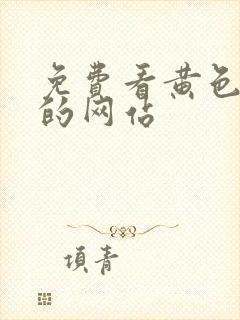 免費看黄色
的网站
項青